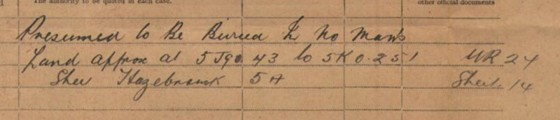 The authority to be quoted in each case.
other official documents
Presumed to Be Buried In No Mans
Land approx at 5J90.43 to 5K0.251 MR 24
Shee Hazebrouck 5A Sheet. 14